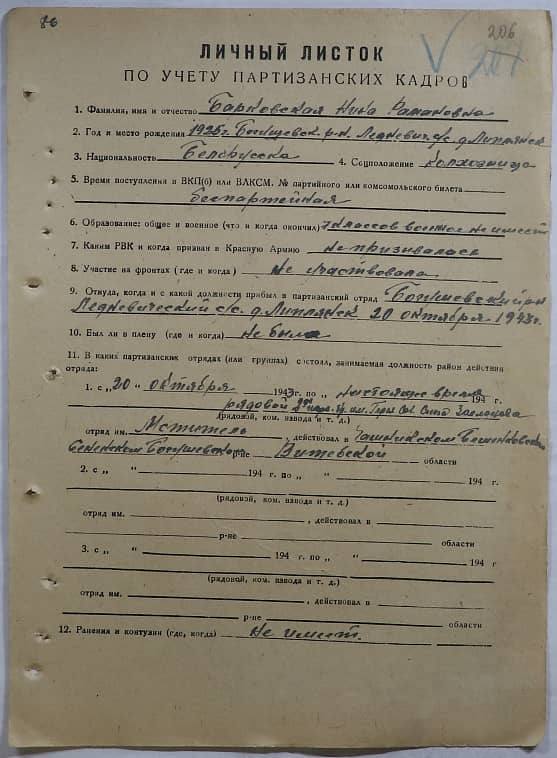 86
206
207
ЛИЧНЫЙ ЛИСТОК
ПО УЧЕТУ ПАРТИЗАНСКИХ КАДРОВ
1. Фамилия, имя и отчество Барковская Нина Рамановна
2. Год и место рождения 1925г. Богушевск. р-н. Ледневич. с/с. д. Липлянск
3. Национальность Белорусска 4. Соцположение колхозница
5. Время поступления в ВКП(б) или ВЛКСМ. № партийного или комсомольского билета
Беспартейная
6. Образование: общее и военное (что и когда окончил) 7 классов военное не имеет
7. Каким РВК и когда призван в Красную Армию не призывалась
8. Участие на фронтах (где и когда) Не участвовала
9. Откуда, когда и с какой должности прибыл в партизанский отряд Богушевский рн
Ледневический с/с. д. Липлянск 20 октября 1943г.
10. Был ли в плену (где и когда) Не была
11. В каких партизанских отрядах (или группах) состоял, занимаемая должность район действия
отряда:
1. с „20 “ октября 1943 г. по „ настоящее время 194 г.
рядовой им. Гер. Сов. Заслонова
(рядовой, ком. взвода и т. д.)
отряд им. Мститель, действовал в Чашникском Бешенковск
Сененском Богушевском р-не Витебской области
2. с „ “ 194 г. по „ “ 194 г.
(рядовой, ком. взвода и т. д.)
отряд им. , действовал в
р-не области
3. с „ “ 194 г. по „ “ 194 г
(рядовой, ком. взвода и т. д.)
отряд им. , действовал в
р-не области
12. Ранения и контузии (где, когда) Не имеет.